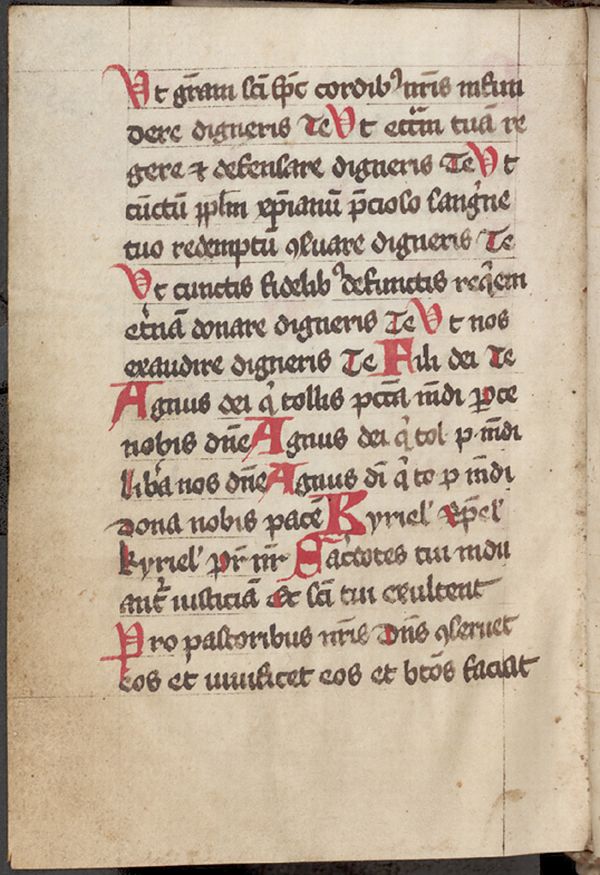 Ut gr̄am sc̄i sp̄c cordibꝰ nr̄is infun
dere digneris Te Ut ecc̄iam tuā re
gere ⁊ defensare digneris Te Ut
cūctū pp̄lm xp̄ianū p̄cioso sangͥne
tuo redemptū ꝯseruare digneris Te
Ut cunctis fidelibꝰ defunctis reqͥem
et̄nā donare digneris Te Ut nos
exaudire digneris Te Fili dei Te
Agnus dei qͥ tollis pcc̄a mūdi ꝑce
nobis dn̄e Agnus dei qͥ tol p mūdi
lib̄a nos dn̄e Agnus di̅ qͥ to p mūdi
dona nobis pacē Kyriel' Xp̄el'
kyriel' pr̄ nr̄ Sac̄dotes tui indu
ant̄ iusticiā Et sc̄i tui exultent
Pro pastoribus nr̄is Dn̄s ꝯseruet
eos et uiuificet eos et bt̄os faciat